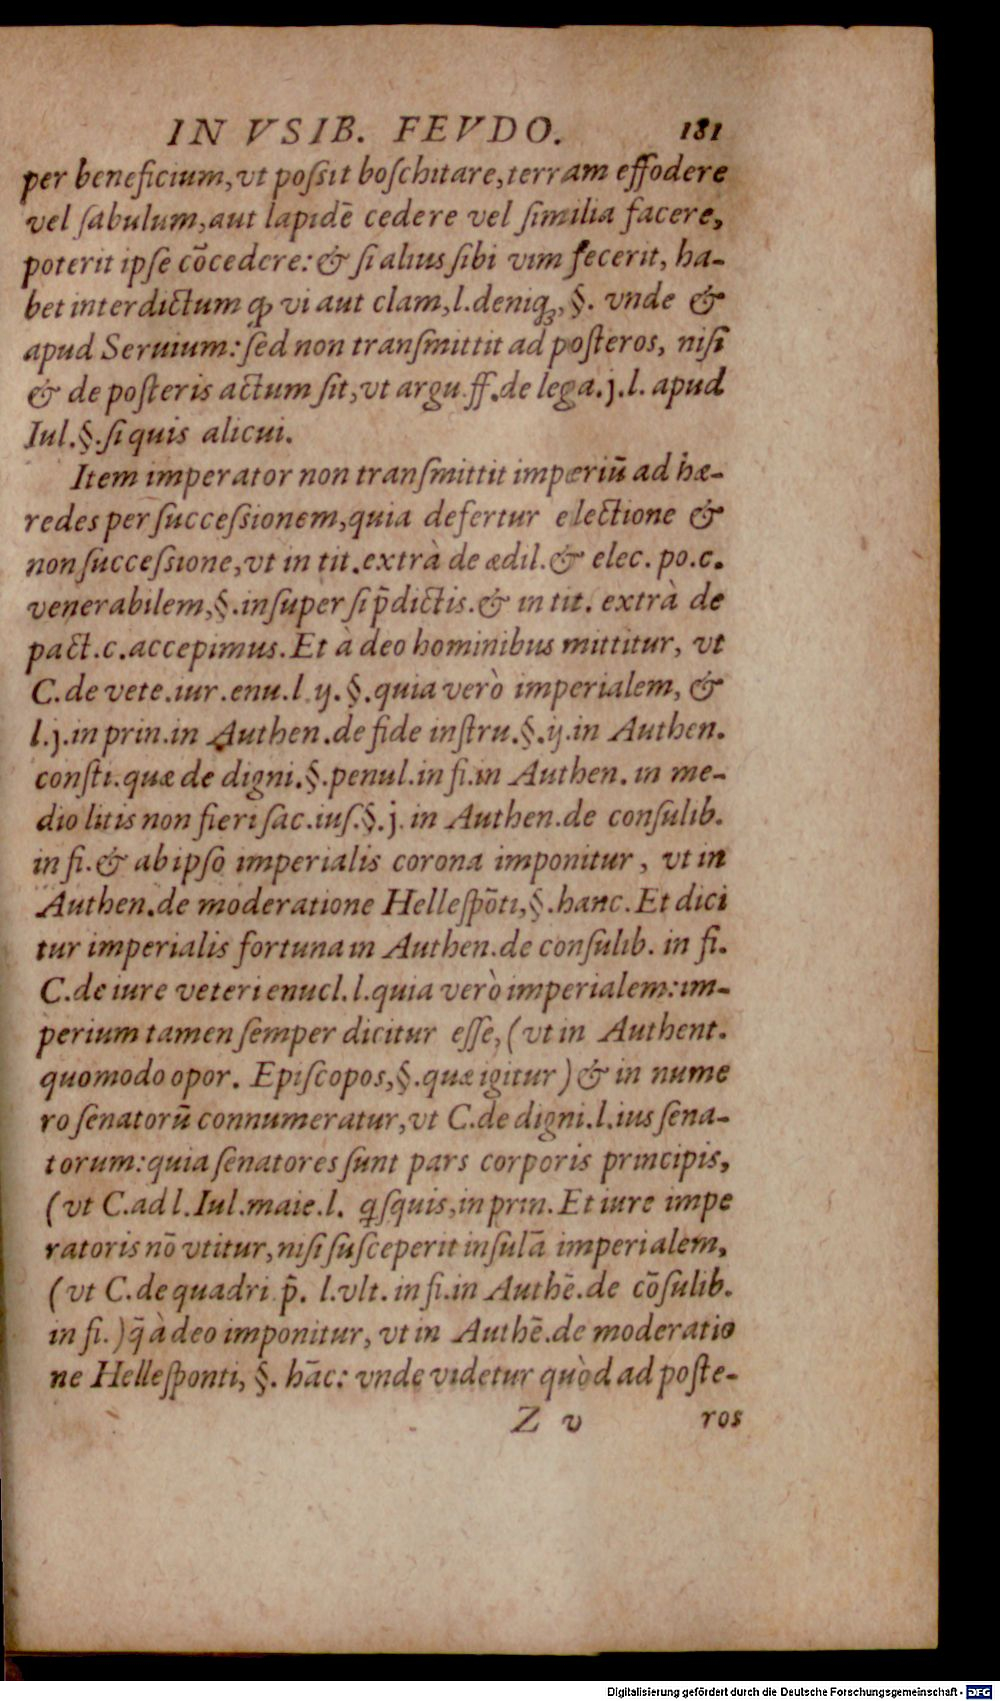 IN VSIB. FEVDO. 181
per beneficium, vt poſsit boſchitare, terram effodere
vel ſabulum, aut lapidē cedere vel ſimilia facere,
poterit ipſe cōcedere: & ſi alius ſibi vim fecerit, ha-
bet interdictum ꝙ vi aut clam, l. deniqꝫ, §. vnde &
apud Seruium: ſed non tranſmittit ad poſteros, niſi
& de poſteris actum ſit, vt argu. ff. de lega. j. l. apud
Iul. §. ſi quis alicui.
Item imperator non tranſmittit imperiū ad hæ-
redes per ſucceſsionem, quia defertur electione &
non ſucceſsione, vt in tit. extrà de ædil. & elec. po. c.
venerabilem, §. inſuper ſi p̄dictis. & in tit. extrà de
pact. c. accepimus. Et à deo hominibus mittitur, vt
C. de vete. iur. enu. l ij. §. quia verò imperialem, &
l. j. in prin. in Authen. de fide inſtru. §. ij. in Authen.
conſti. quæ de digni. §. penul. in fi. in Authen. in me-
dio litis non fieri ſac. iuſ. §. j. in Authen. de conſulib.
in fi. & ab ipſo imperialis corona imponitur, vt in
Authen. de moderatione Helleſpōti, §. hanc. Et dici
tur imperialis fortuna in Authen. de conſulib. in fi.
C. de iure veteri enucl. l. quia verò imperialem: im-
perium tamen ſemper dicitur eſſe, (vt in Authent.
quomodo opor. Epiſcopos, §. quæ igitur) & in nume
ro ſenatorū connumeratur, vt C. de digni. l. ius ſena-
torum: quia ſenatores ſunt pars corporis principis,
(vt C. ad l. Iul. maie. l. ꝗſquis, in prin. Et iure impe
ratoris nō vtitur, niſi ſuſceperit inſulā imperialem,
(vt C. de quadri p̄. l. vlt. in fi. in Authē. de cōſulib.
in fi.) q̄ à deo imponitur, vt in Authē. de moderatio
ne Helleſponti, §. hāc: vnde videtur quòd ad poſte-
Z v ros
Digitalisierung gefördert durch die Deutsche Forschungsgemeinschaft - DFG